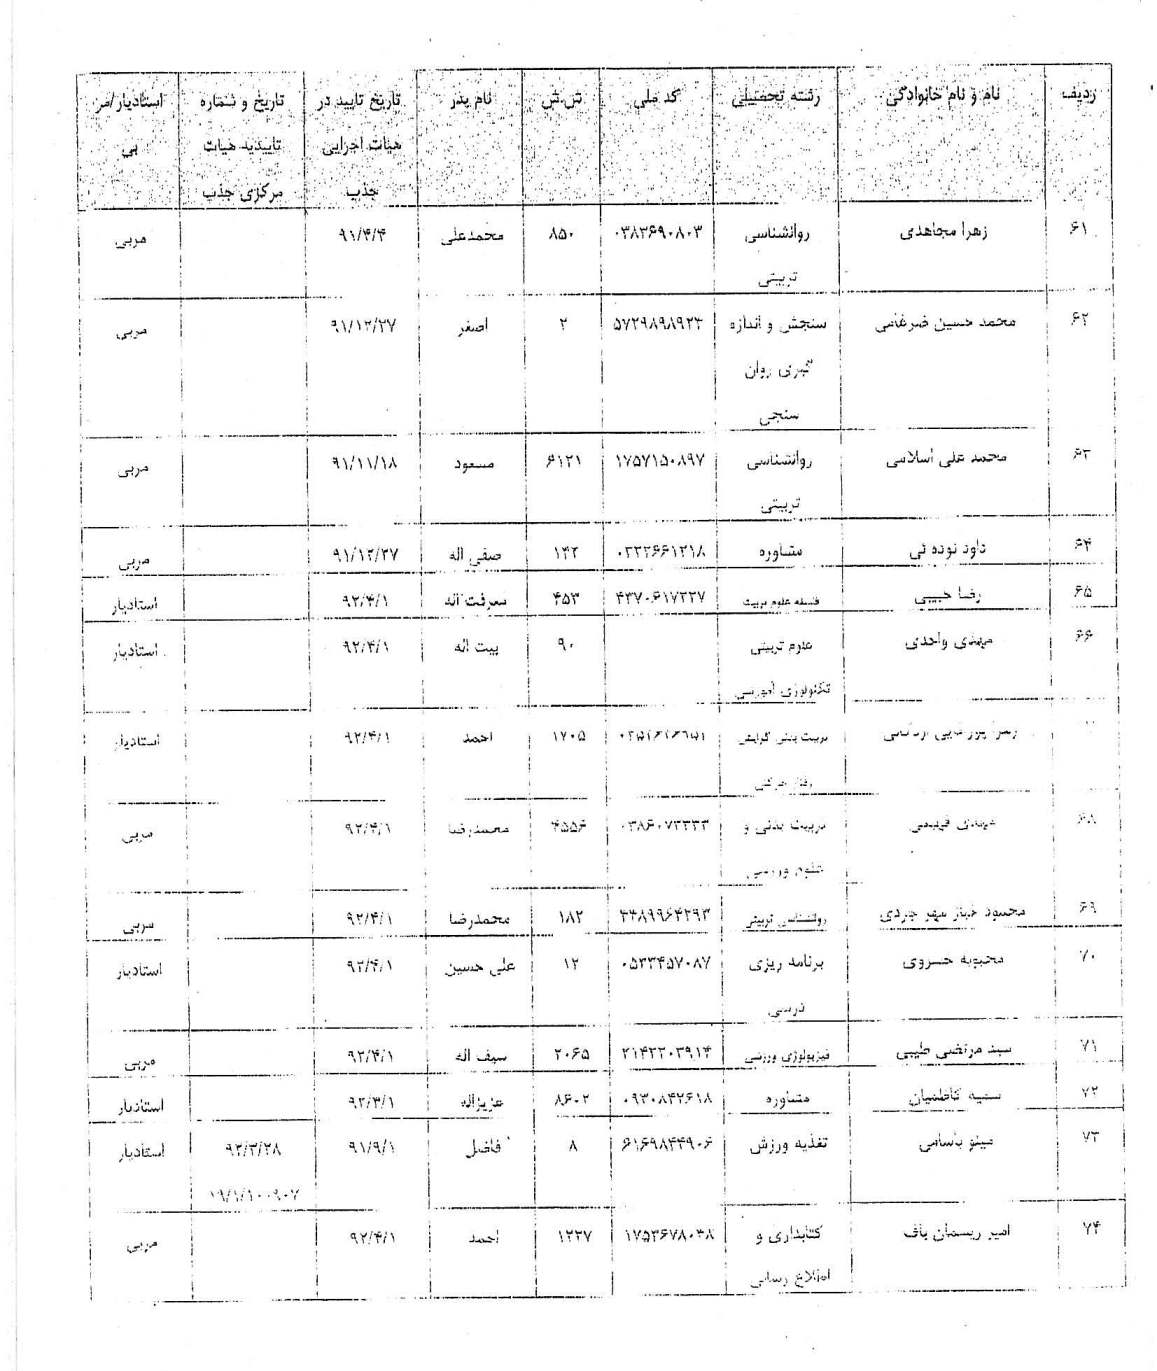 ردیف نام و نام خانوادگی رشته تحصیلی کد ملی ش.ش نام پدر تاریخ تایید در هیات اجرایی جذب تاریخ و شماره تاییدیه هیات مرکزی جذب استادیار/مربی
۶۱ زهرا مجاهدی روانشناسی تربیتی ۰۳۸۳۶۹۰۸۰۳ ۸۵۰ محمدعلی ۹۱/۴/۴ مربی
۶۲ محمد حسین ضرغامی سنجش و اندازه گیری روان سنجی ۵۷۲۹۸۹۸۹۲۳ ۲ اصغر ۹۱/۱۲/۲۷ مربی
۶۳ محمد علی اسلامی روانشناسی تربیتی ۱۷۵۷۱۵۰۸۹۷ ۶۱۲۱ مسعود ۹۱/۱۱/۱۸ مربی
۶۴ داود نوده ئی مشاوره ۱۴۲ صفی اله ۹۱/۱۲/۲۷ مربی
۶۵ رضا حبیبی فلسفه علوم تربیت ۴۵۳ معرفت اله ۹۲/۴/۱ استادیار
۶۶ مهدی واحدی علوم تربیتی تکنولوژی آموزشی ۹۰ بیت اله ۹۲/۴/۱ استادیار
تربیت بدنی گرایش رفتار حرکتی ۱۷۰۵ احمد ۹۲/۴/۱ استادیار
۶۸ مهدی فهیمی تربیت بدنی و علوم ورزشی ۰۳۸۶۰۷۳۳۳۳ ۴۵۵۶ محمدرضا ۹۲/۴/۱ مربی
۶۹ محمود خباز مهر جردی روانشناسی تربیتی ۱۸۲ محمدرضا ۹۲/۴/۱ مربی
۷۰ محبوبه خسروی برنامه ریزی درسی ۰۵۳۳۴۵۷۰۸۷ ۱۲ علی حسین ۹۲/۴/۱ استادیار
۷۱ سید مرتضی طیبی فیزیولوژی ورزشی ۲۱۴۲۲۰۳۹۱۴ ۲۰۶۵ سیف اله ۹۲/۴/۱ مربی
۷۲ سمیه کاظمیان مشاوره ۰۹۳۰۸۴۲۶۱۸ ۸۶۰۲ عزیزاله ۹۲/۳/۱ استادیار
۷۳ مینو باسامی تغذیه ورزش ۶۱۶۹۸۴۴۹۰۶ ۸ فاضل ۹۱/۹/۱ ۹۲/۳/۲۸ استادیار
۷۴ امیر ریسمان باف کتابداری و اطلاع رسانی ۱۷۵۳۶۷۸۰۳۸ ۱۲۲۷ احمد ۹۲/۴/۱ مربی